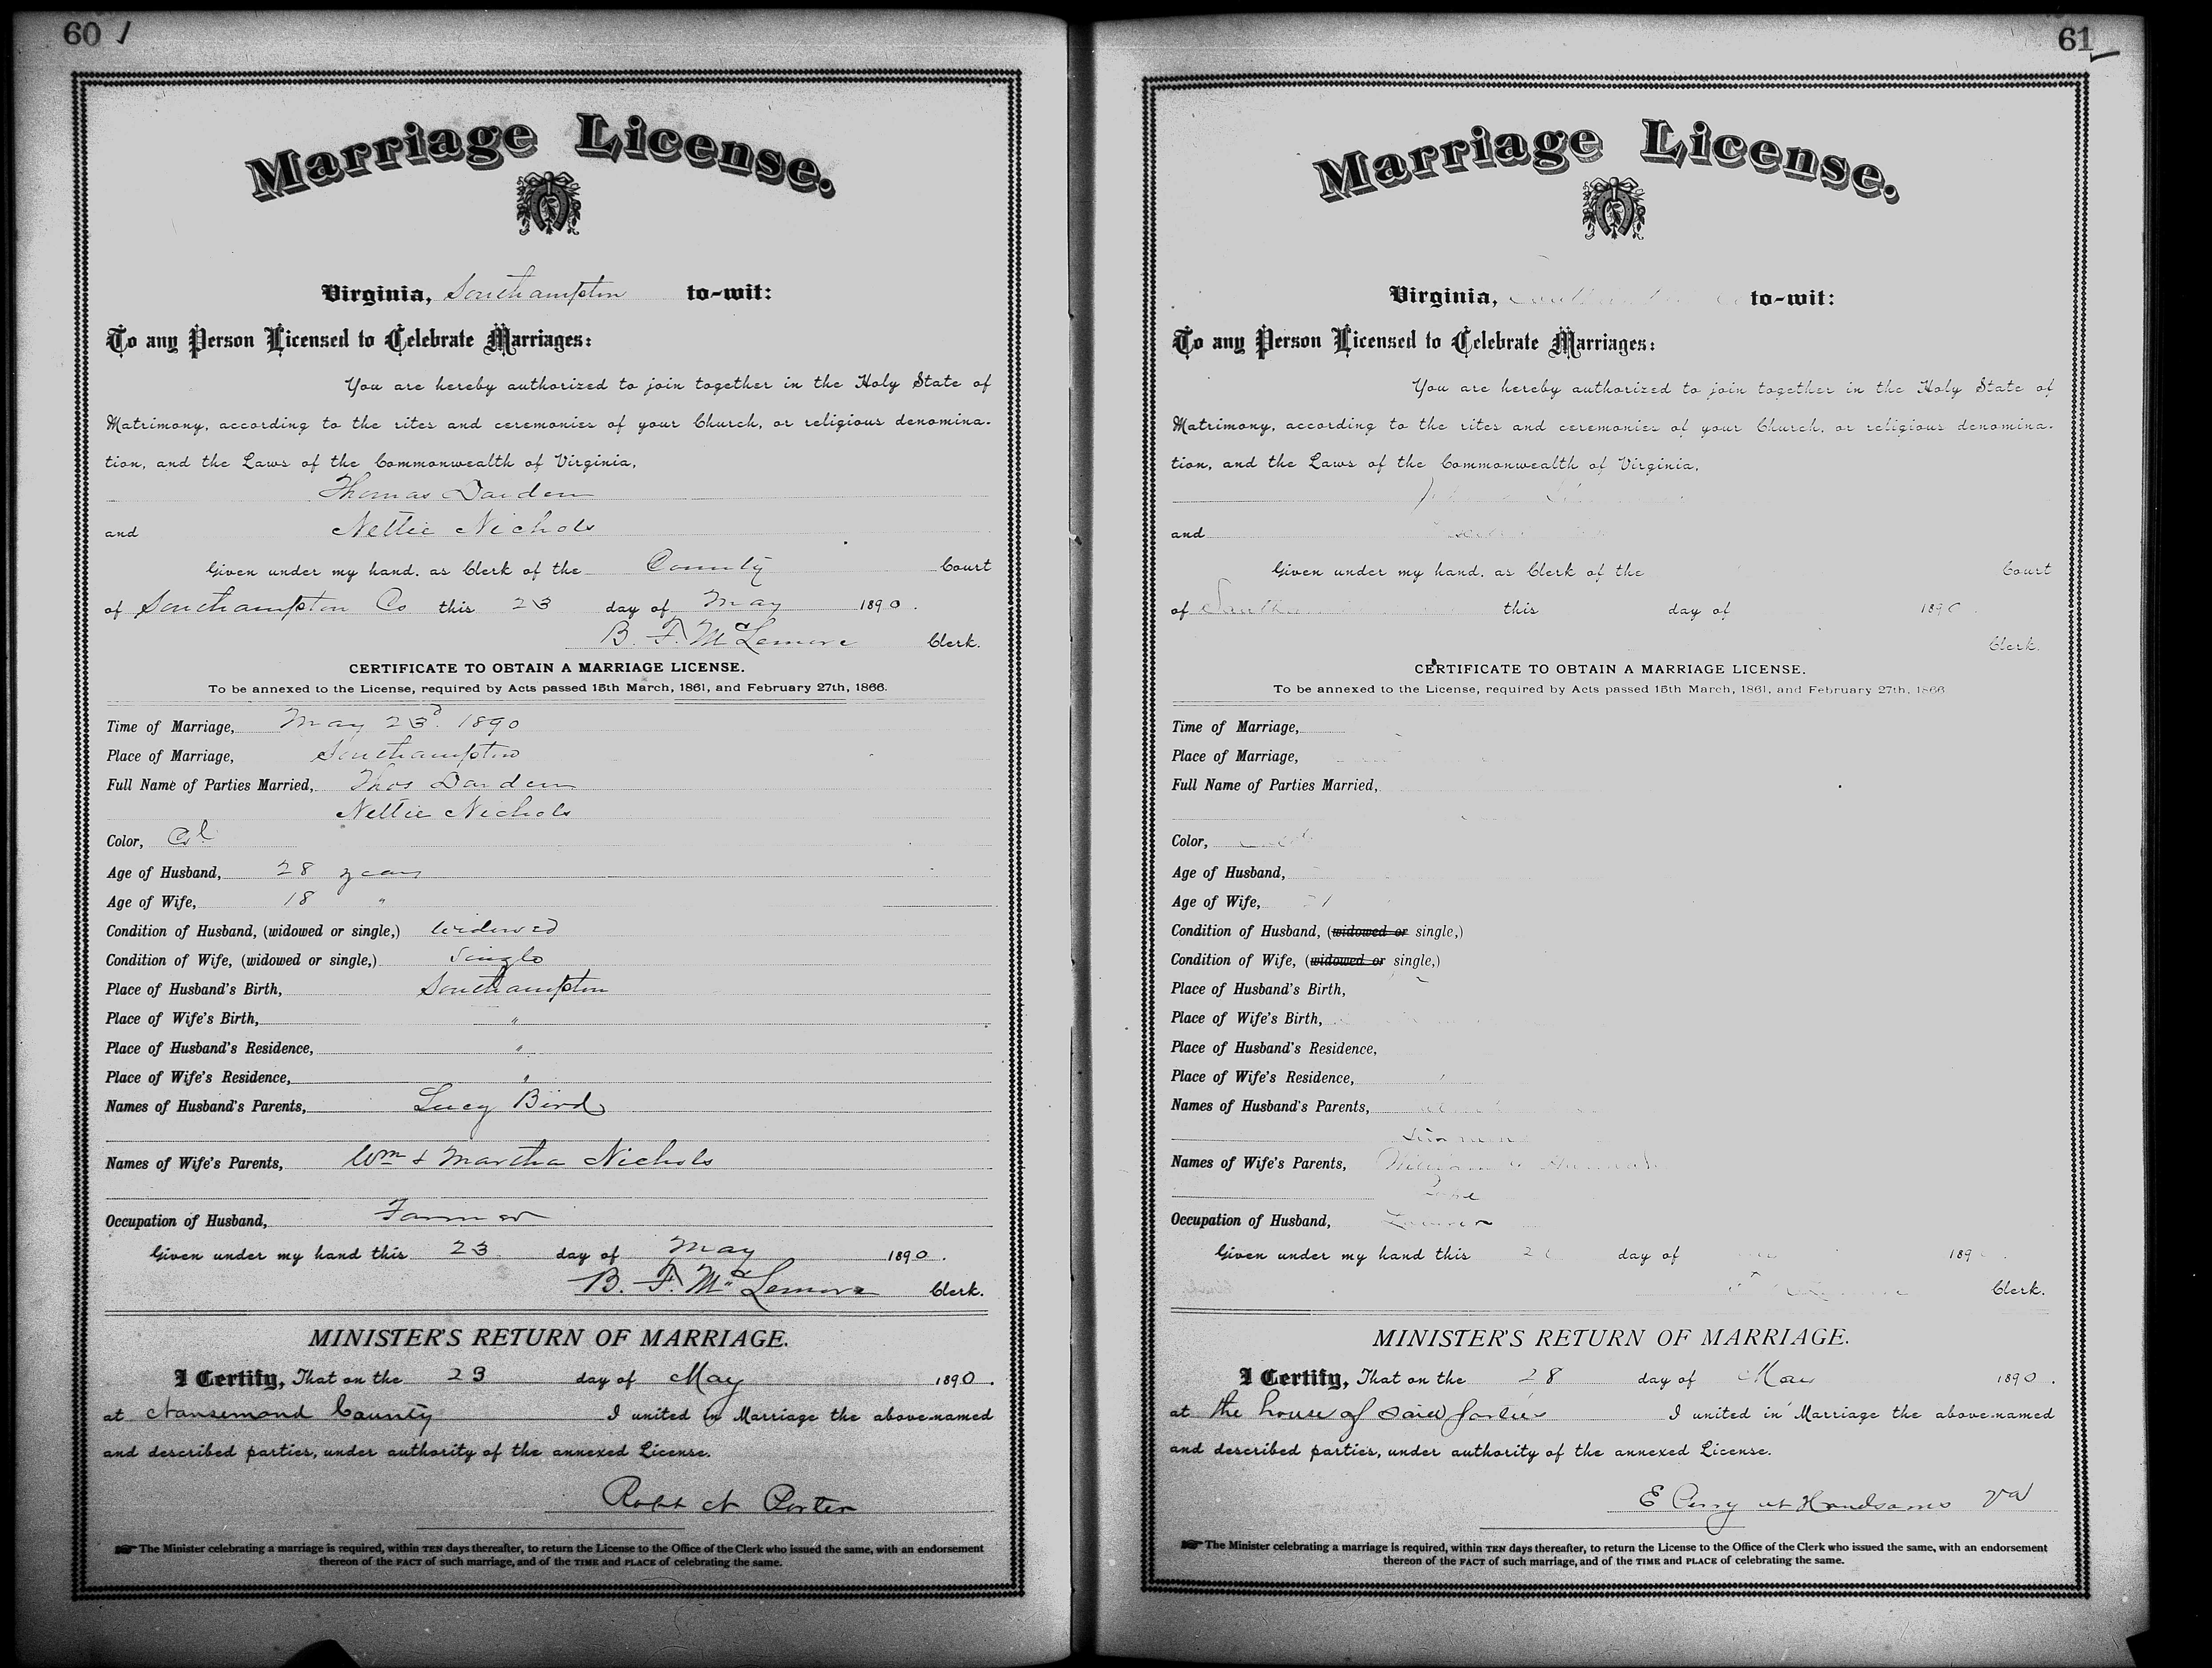 60
Marriage License.
Virginia, Southampton to-wit:
To any Person Licensed to Celebrate Marriages:
You are hereby authorized to join together in the Holy State of
Matrimony, according to the rites and ceremonies of your Church, or religious denomina-
tion, and the Laws of the Commonwealth of Virginia,
Thomas Darden
and Nettie Nichols
Given under my hand, as Clerk of the County Court
of Southampton Co this 23 day of May 1890.
B. F. McLemore Clerk.
CERTIFICATE TO OBTAIN A MARRIAGE LICENSE.
To be annexed to the License, required by Acts passed 15th March, 1861, and February 27th, 1866.
Time of Marriage, May 23d. 1890
Place of Marriage, Southampton
Full Name of Parties Married, Thos Darden
Nettie Nichols
Color, Col
Age of Husband, 28 years
Age of Wife, 18 "
Condition of Husband, (widowed or single,) widowed
Condition of Wife, (widowed or single,) Single
Place of Husband's Birth, Southampton
Place of Wife's Birth, "
Place of Husband's Residence, "
Place of Wife's Residence, "
Names of Husband's Parents, Lucy Bird
Names of Wife's Parents, Wm & Martha Nichols
Occupation of Husband, Farmer
Given under my hand this 23 day of May 1890.
B. F. McLemore Clerk.
MINISTER'S RETURN OF MARRIAGE.
I Certify, That on the 23 day of May 1890.
at Nansemond County I united in Marriage the above-named
and described parties, under authority of the annexed License.
Robt N Porter
The Minister celebrating a marriage is required, within TEN days thereafter, to return the License to the Office of the Clerk who issued the same, with an endorsement
thereon of the FACT of such marriage, and of the TIME and PLACE of celebrating the same.
61
Marriage License.
Virginia, to-wit:
To any Person Licensed to Celebrate Marriages:
You are hereby authorized to join together in the Holy State of
Matrimony, according to the rites and ceremonies of your Church, or religious denomina-
tion, and the Laws of the Commonwealth of Virginia,
and
Given under my hand, as Clerk of the Court
of this day of 1890
Clerk.
CERTIFICATE TO OBTAIN A MARRIAGE LICENSE.
To be annexed to the License, required by Acts passed 15th March, 1861, and February 27th, 1866
Time of Marriage,
Place of Marriage,
Full Name of Parties Married,
Color,
Age of Husband,
Age of Wife, 21
Condition of Husband, (widowed or single,)
Condition of Wife, (widowed or single,)
Place of Husband's Birth,
Place of Wife's Birth,
Place of Husband's Residence,
Place of Wife's Residence,
Names of Husband's Parents,
Names of Wife's Parents,
Occupation of Husband,
Given under my hand this day of 189
Clerk.
MINISTER'S RETURN OF MARRIAGE.
I Certify, That on the 28 day of May 1890.
at the house of said parties I united in Marriage the above-named
and described parties, under authority of the annexed License.
E Perry at Handsoms Va
The Minister celebrating a marriage is required, within TEN days thereafter, to return the License to the Office of the Clerk who issued the same, with an endorsement
thereon of the FACT of such marriage, and of the TIME and PLACE of celebrating the same.